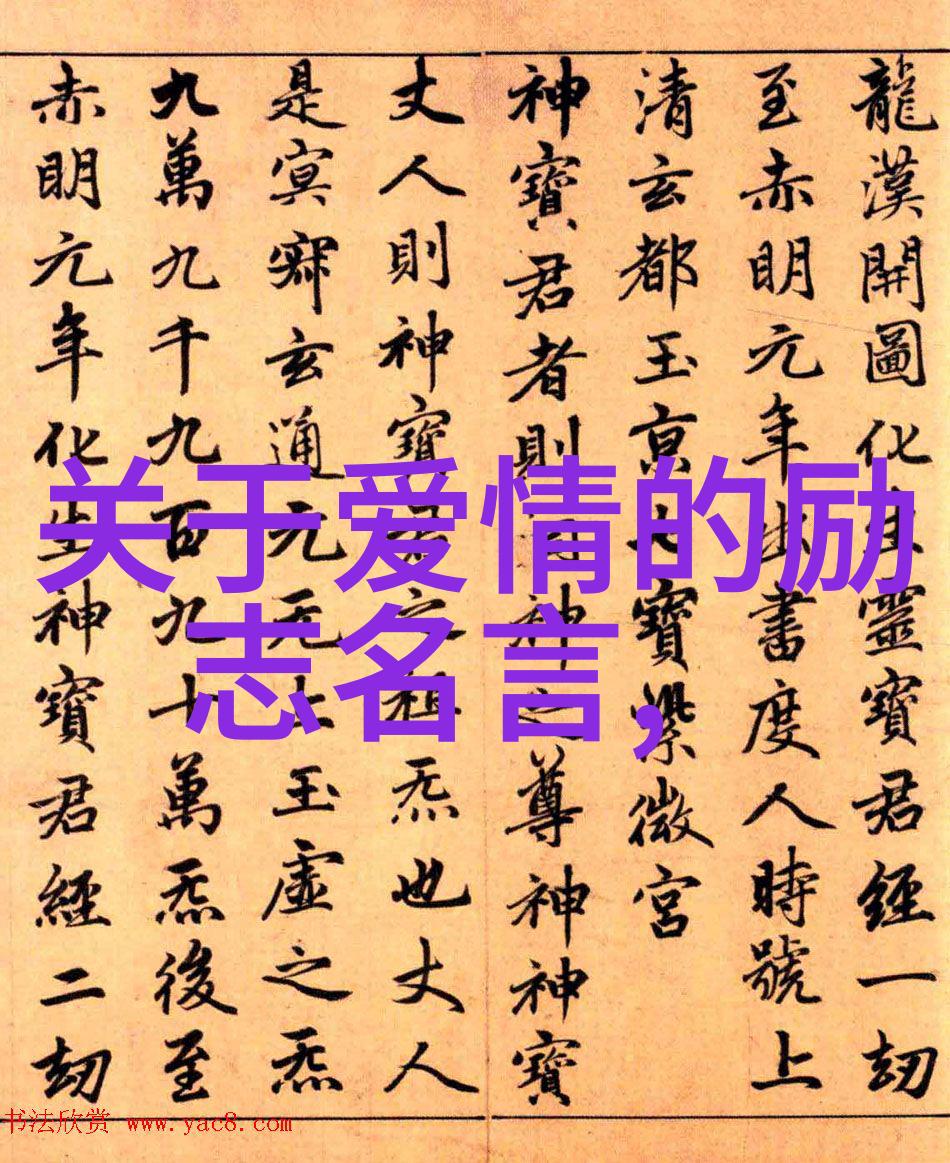 龍漢開圖化生靈寶君經一劫
至赤明元年出書度人時號上
清玄都玉京七寶紫微宮
神寶君者則洞神之尊神神寶
丈人則神寶君之祖炁也丈人
是冥寂玄通元无上玉虛之炁
九萬九千九百九十萬炁後至
赤明元年化生神寶君經二劫
关于爱情的励
志名言,
书法欣赏 www.yac8.com